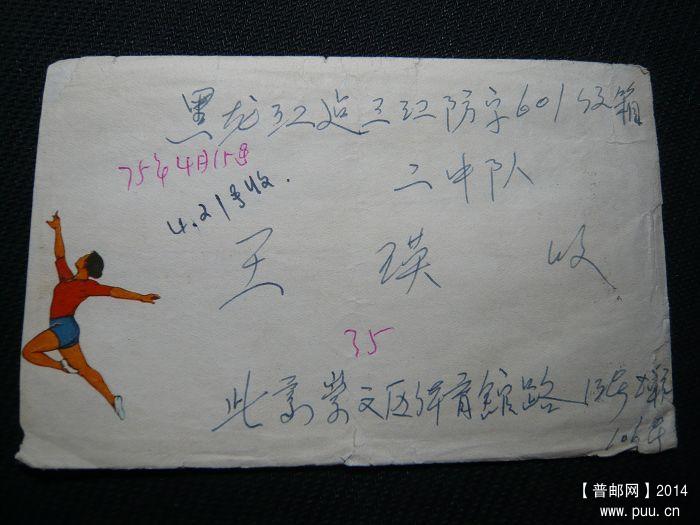 黑龙江迠三江防字601信箱
75年4月15号
4.21号收.
二中队
王瑛 收
35
北京崇文区体育舘路
【普邮网】2014
www.puu.cn